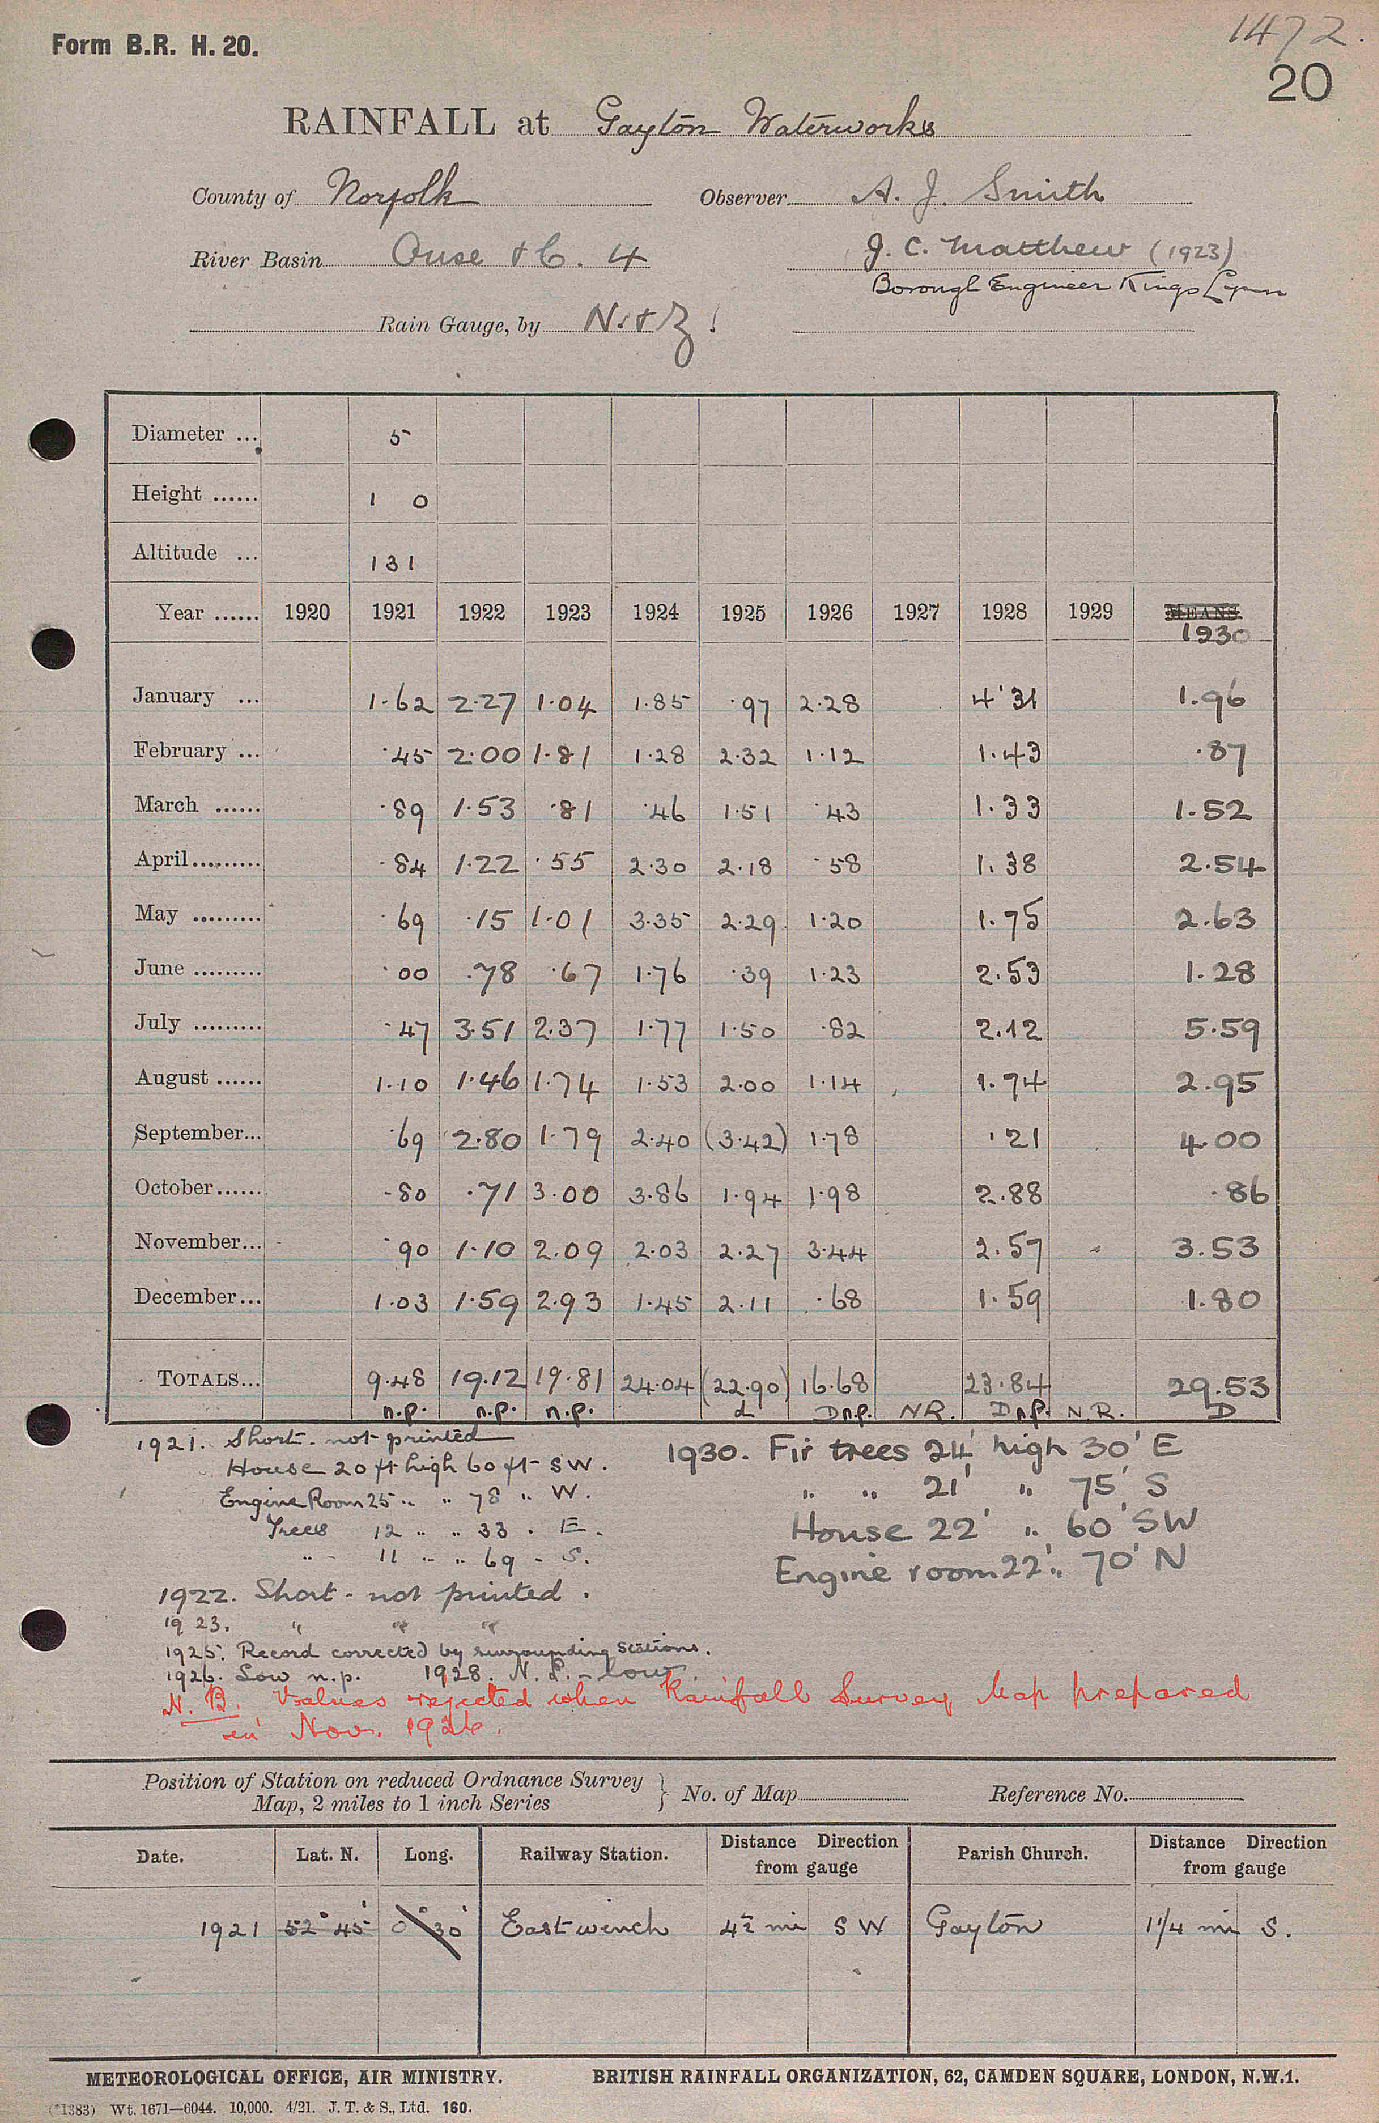 Form B.R. H. 20.
1472.
20
RAINFALL at Gayton Waterworks
County of Norfolk Observer A. J. Smith
River Basin Ouse &c. 4 J. C. Matthew (1923)
Borough Engineer Kings Lynn
Rain Gauge, by N. & Z!
Diameter ... 5
Height ...... 1 0
Altitude ... 131
Year ...... 1920 1921 1922 1923 1924 1925 1926 1927 1928 1929 MEANS.
1930
January ... 1.62 2.27 1.04 1.85 .97 2.28 4.31 1.96
February ... .45 2.00 1.81 1.28 2.32 1.12 1.43 .87
March ...... .89 1.53 .81 .46 1.51 .43 1.33 1.52
April......... .84 1.22 .55 2.30 2.18 .58 1.38 2.54
May ......... .69 .15 1.01 3.35 2.29 1.20 1.75 2.63
June ......... .00 .78 .67 1.76 .39 1.23 2.53 1.28
July ......... .47 3.51 2.37 1.77 1.50 .82 2.12 5.59
August ...... 1.10 1.46 1.74 1.53 2.00 1.14 1.74 2.95
September... .69 2.80 1.79 2.40 (3.42) 1.78 .21 4.00
October...... .80 .71 3.00 3.86 1.94 1.98 2.88 .86
November... .90 1.10 2.09 2.03 2.27 3.44 2.57 3.53
December... 1.03 1.59 2.93 1.45 2.11 .68 1.59 1.80
TOTALS... 9.48 19.12 19.81 24.04 (22.90) 16.68 23.84 29.53
n.p. n.p. n.p. d Dnp. NR. Dnp. N.R. D
1921. Short. not printed
House 20 ft high 60 ft SW.
Engine Room 25 " " 78 " W.
Trees 12 " " 33 " E.
" " 11 " " 69 " S.
1922. Short - not printed.
1923. " " "
1925. Record corrected by surrounding stations.
1926. Low n.p. 1928. N. P. - low.
1930. Fir trees 24' high 30' E
" " 21' " 75' S
House 22' " 60' SW
Engine room 22' " 70' N
N.B. Values rejected when Rainfall Survey Map prepared
in Nov. 1926.
Position of Station on reduced Ordnance Survey
Map, 2 miles to 1 inch Series } No. of Map Reference No.
Date. Lat. N. Long. Railway Station. Distance Direction from gauge Parish Church. Distance Direction from gauge
1921 52° 45' 0° 30' Eastwinch 4½ mi SW Gayton 1¼ mi S.
METEOROLOGICAL OFFICE, AIR MINISTRY. BRITISH RAINFALL ORGANIZATION, 62, CAMDEN SQUARE, LONDON, N.W.1.
(*1383) Wt. 1671—6044. 10,000. 4/21. J. T. & S., Ltd. 160.